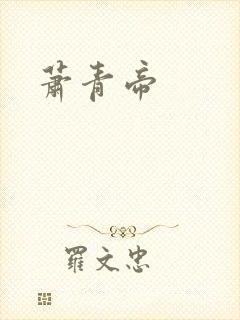 蕭青帝
羅文忠